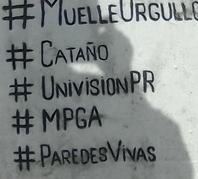 #MUELLEURGULLO
#CATAÑO
#UNIVISIONPR
#MPGA
#PAREDESVIVAS